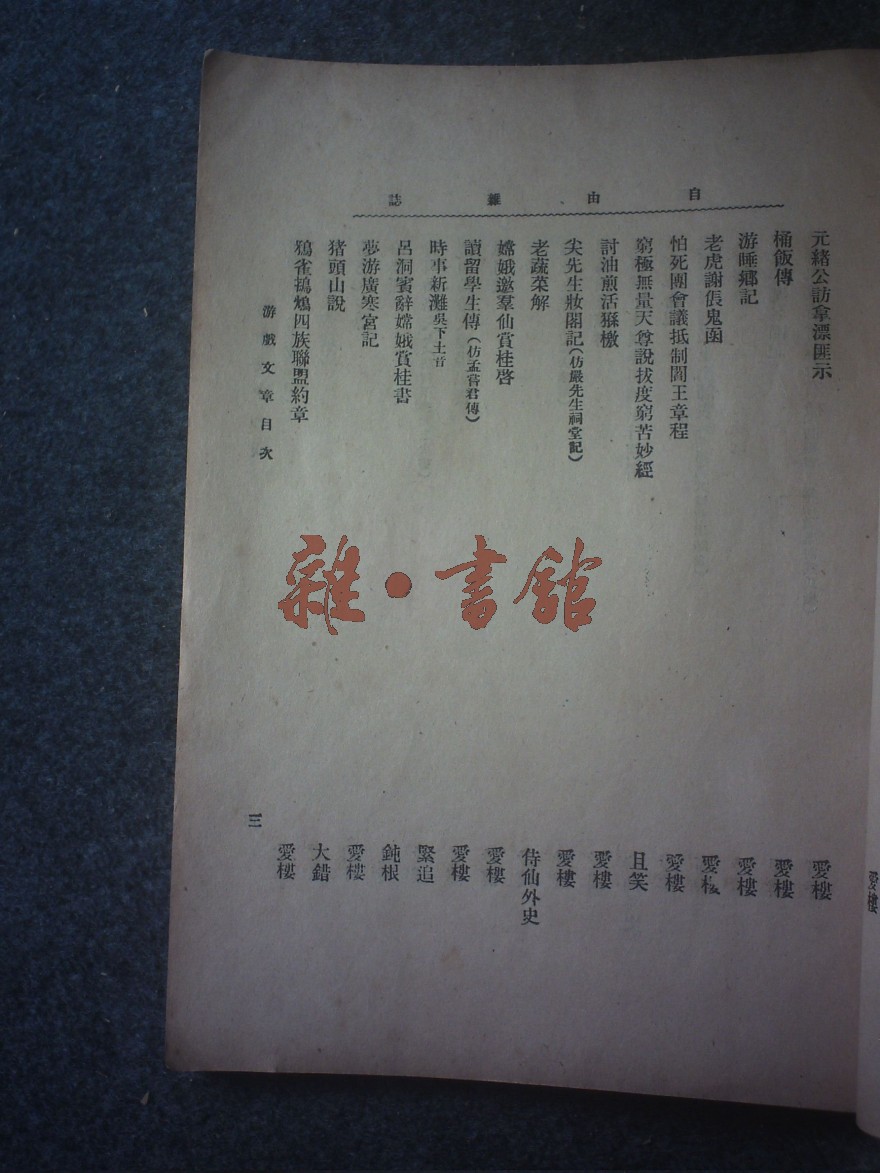 自由雜誌
愛樓
元緒公訪拿漂匪示 愛樓
桶飯傳 愛樓
游睡鄉記 愛樓
老虎謝倀鬼函 愛樓
怕死團會議抵制閻王章程 愛樓
窮極無量天尊說拔度窮苦妙經 且笑
討油煎活猻檄 愛樓
尖先生妝閣記(仿嚴先生祠堂記) 愛樓
老蔬菜解 侍仙外史
嫦娥邀羣仙賞桂啓 愛樓
讀留學生傳(仿孟嘗君傳) 愛樓
時事新灘吳下土音 緊追
呂洞賓辭嫦娥賞桂書 鈍根
夢游廣寒宮記 愛樓
猪頭山說 大錯
鵶雀鴇鴆四族聯盟約章 愛樓
游戲文章目次
三
雜·書館